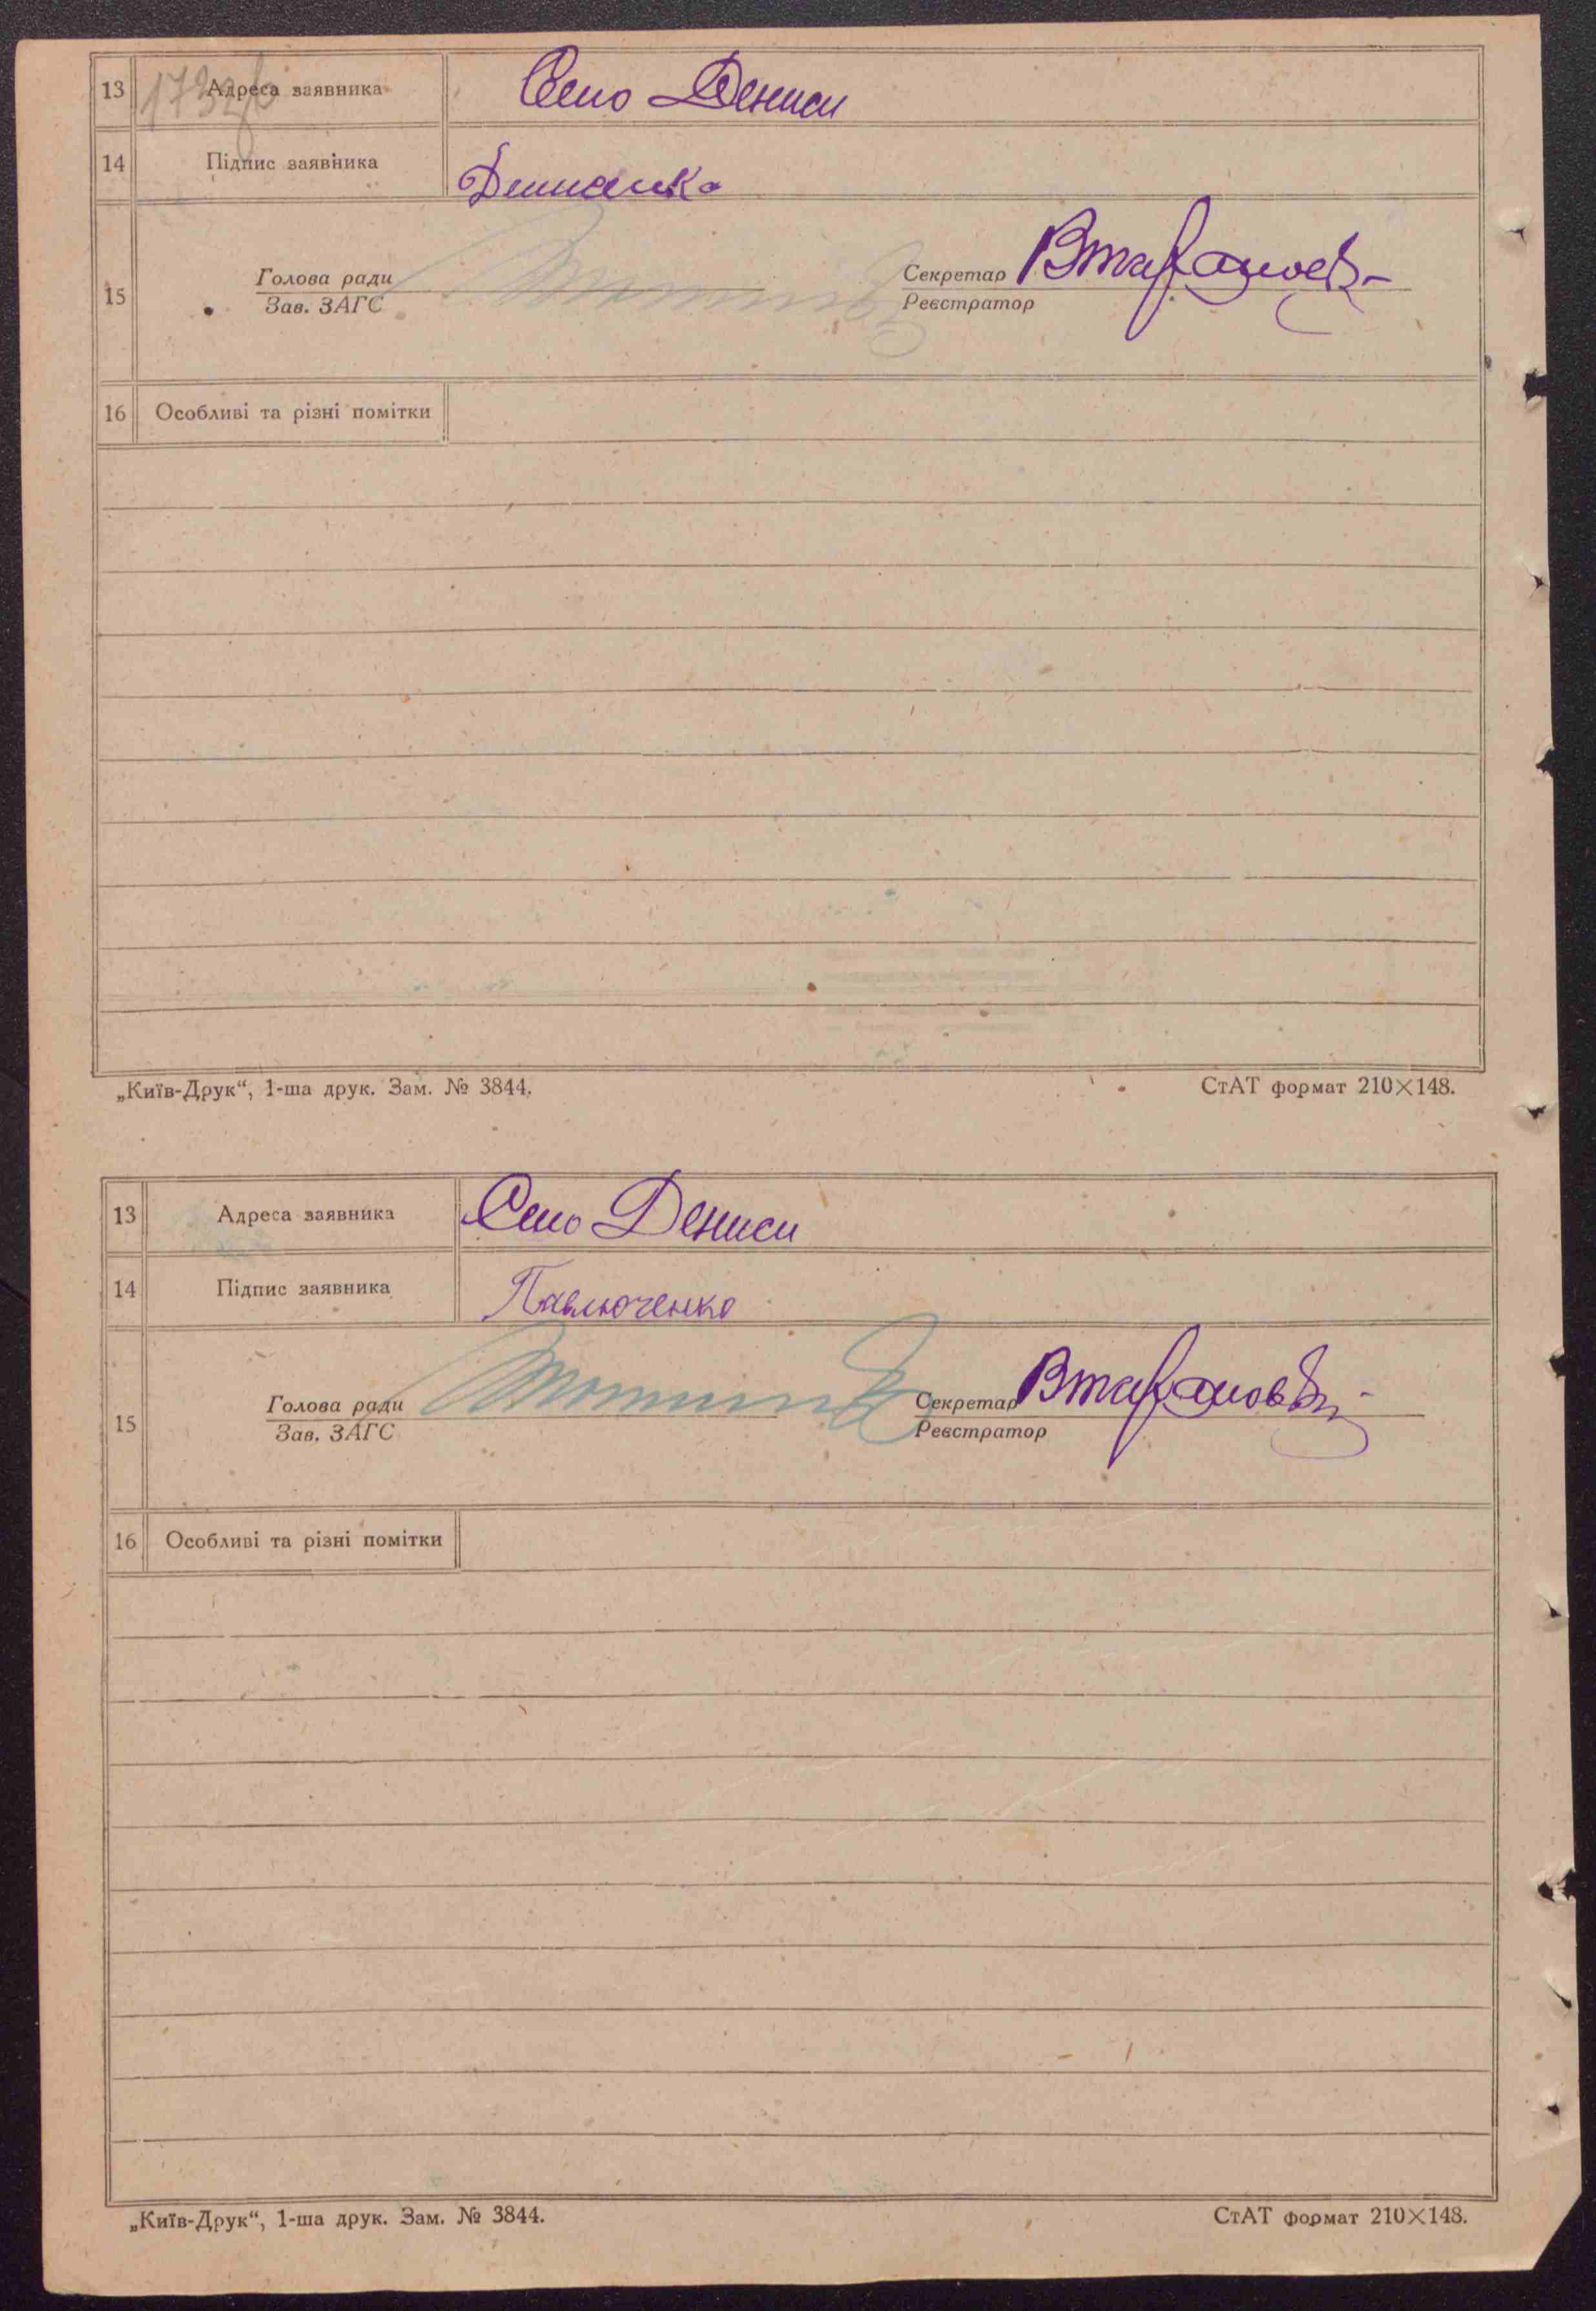 13 Адреса заявника Село Дениси
14 Підпис заявника
Голова ради Секретар
15
Зав. ЗАГС Реєстратор
16 Особливі та різні помітки
„Київ-Друк“, 1-ша друк. Зам. № 3844. СтАТ формат 210×148.
13 Адреса заявника Село Дениси
14 Підпис заявника Павлюченко
Голова ради Секретар
15
Зав. ЗАГС Реєстратор
16 Особливі та різні помітки
„Київ-Друк“, 1-ша друк. Зам. № 3844. СтАТ формат 210×148.